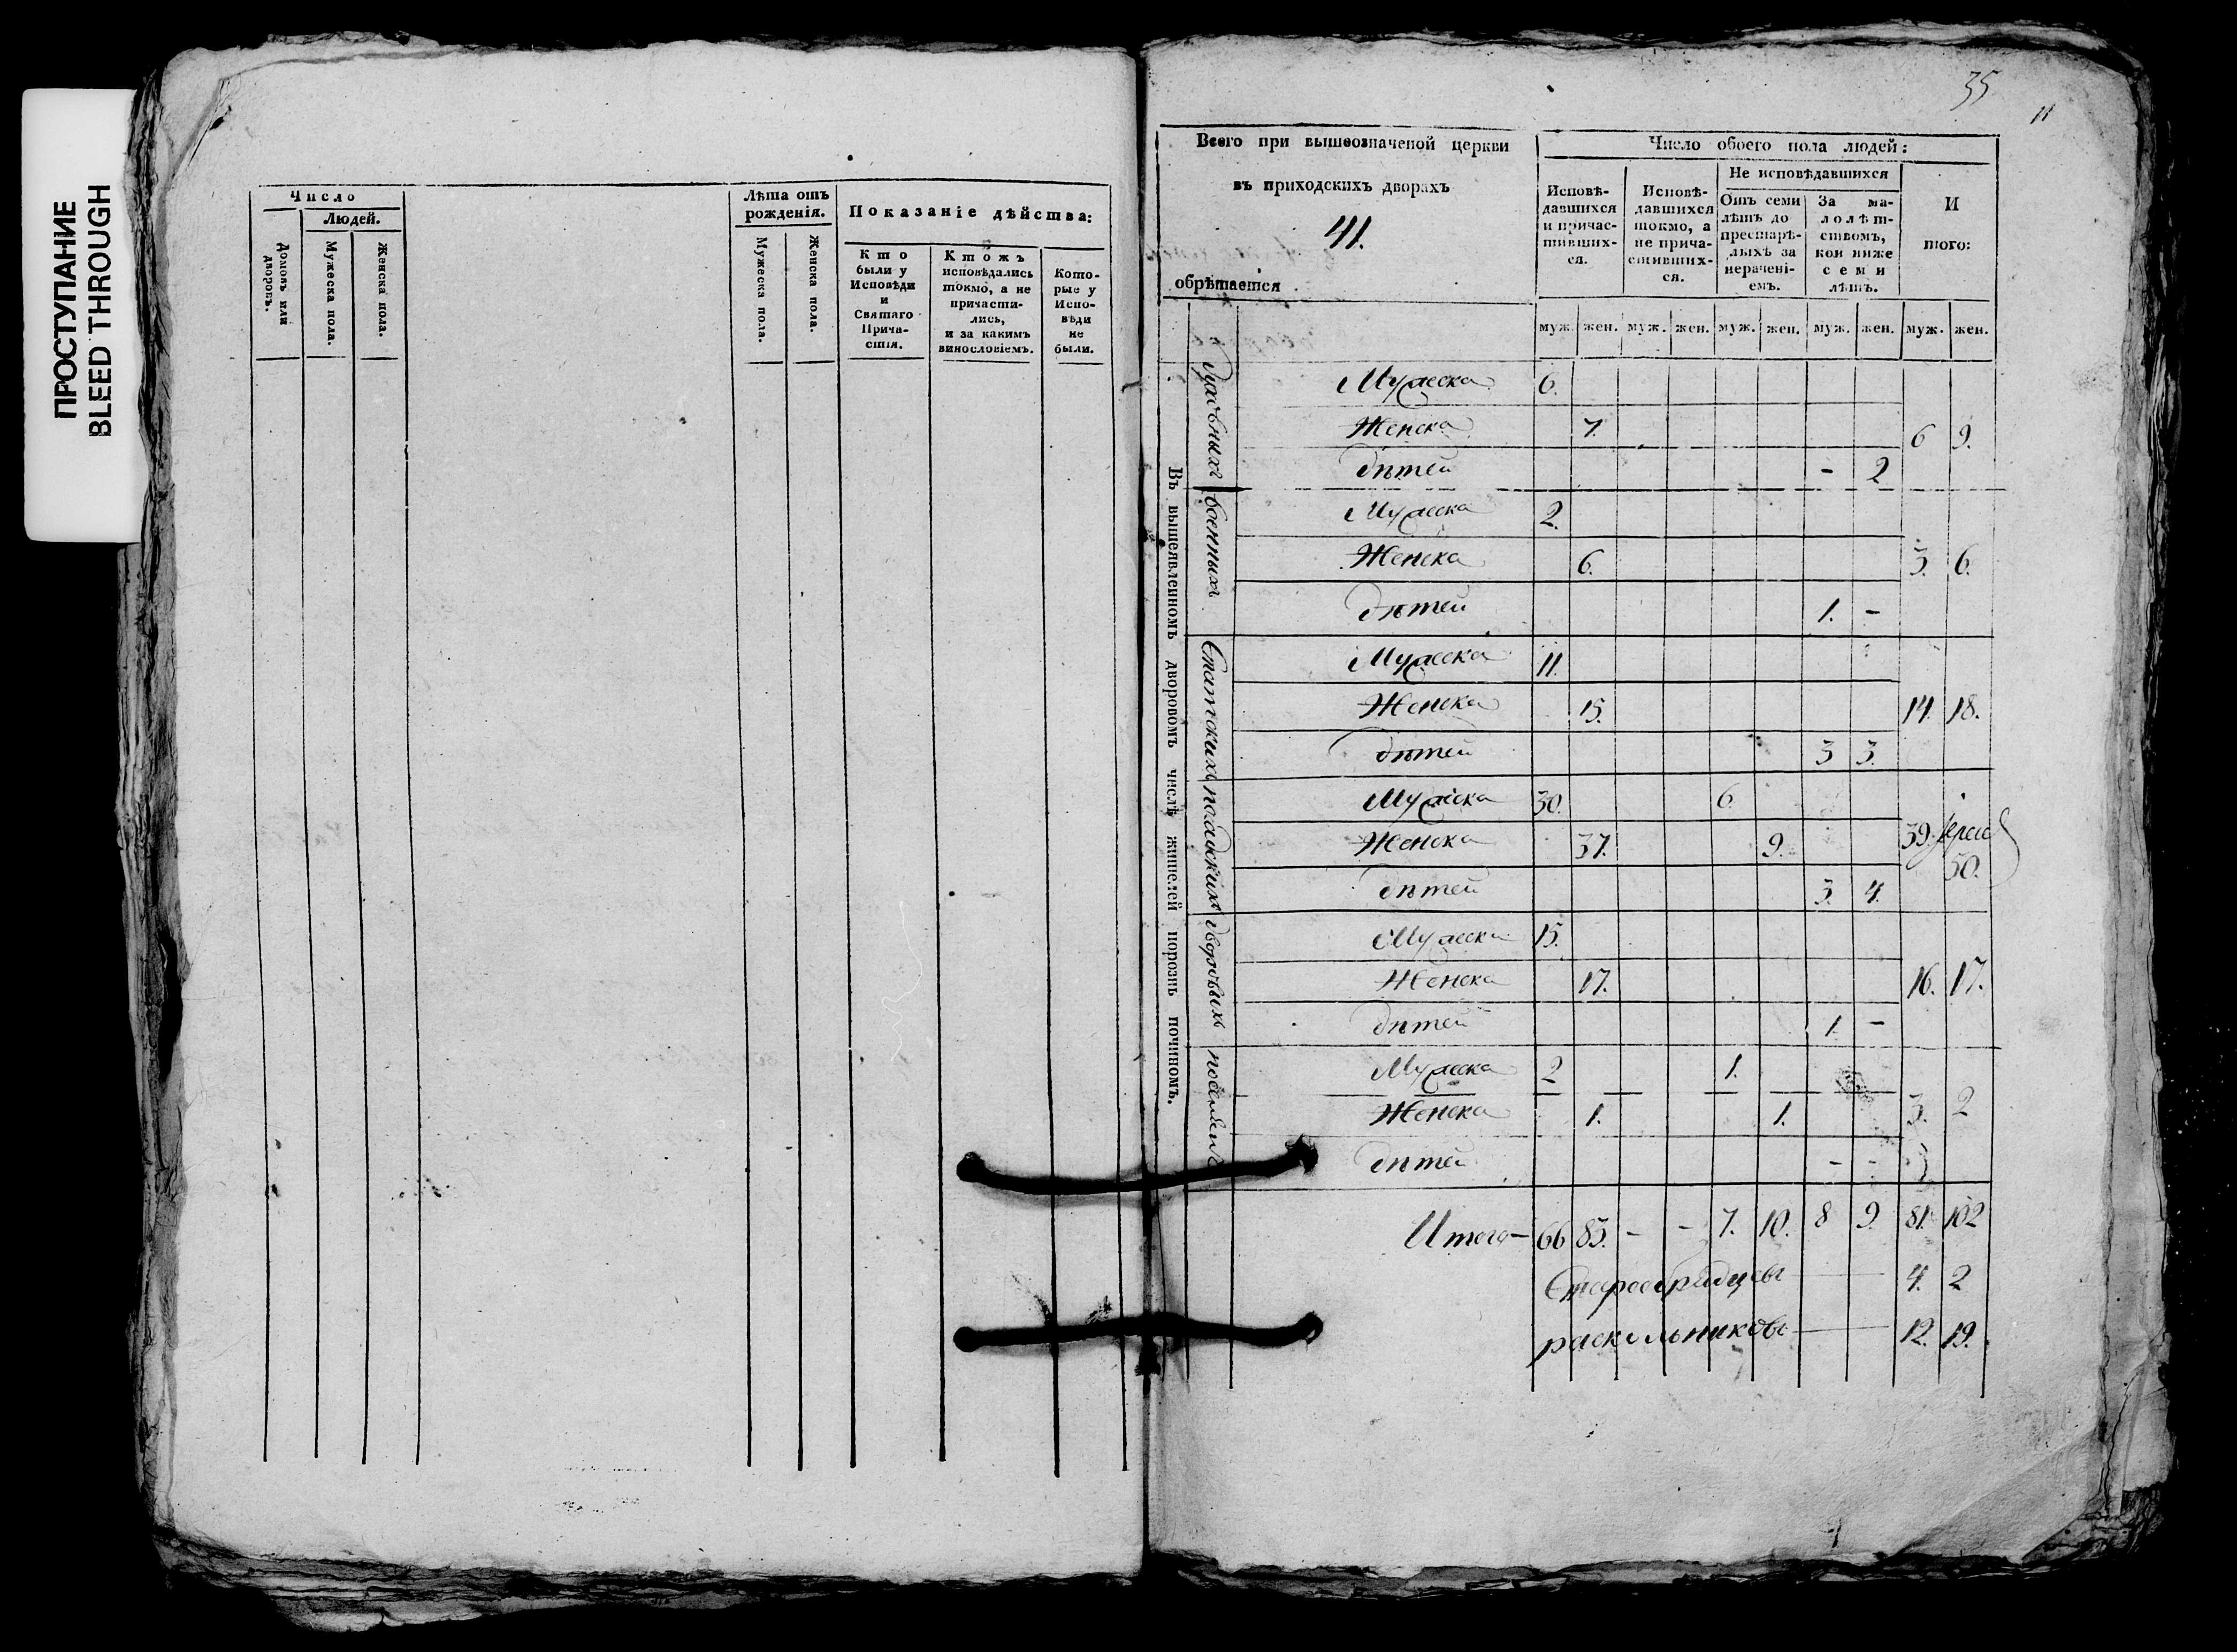 ПРОСТУПАНИЕ
BLEED THROUGH
Число
Людей.
Домовъ или дворовъ.
Мужеска пола.
Женска пола.
Лѣта отъ рожденія.
Мужеска пола.
Женска пола.
Показаніе дѣйства:
Кто
были у
Исповѣди
и
Святаго
Прича-
стія.
Ктожъ
исповѣдались
токмо, а не
причасти-
лись,
и за какимъ
винословіемъ.
Кото-
рые у
Испо-
вѣди
не
были.
35
11
Всего при вышеозначеной церкви
въ приходскихъ дворахъ
41.
обрѣтается
Число обоего пола людей:
Исповѣ-
давшихся
и причас-
тивших-
ся.
Исповѣ-
давшихся
токмо, а
не прича-
стивших-
ся.
Не исповѣдавшихся
Отъ семи
лѣтъ до
престарѣ-
лыхъ за
нерачені-
емъ.
За ма-
лолѣт-
ствомъ,
кои ниже
семи
лѣтъ.
И
того:
муж. жен. муж. жен. муж. жен. муж. жен. муж. жен.
Въ вышеявленномъ дворовомъ числѣ жителей порознь починомъ.
духовныхъ
Мужеска 6.
Женска 7. 6 9.
дѣтей - 2
военныхъ
Мужеска 2.
Женска 6. 3. 6.
дѣтей 1. -
Статскихъ
Мужеска 11.
Женска 15. 14. 18.
дѣтей 3 3.
посадскихъ
Мужеска 30. 6.
Женска 37. 9. 39.
50.
дѣтей 3. 4.
дворовыхъ
Мужеска 15.
Женска 17. 16. 17.
дѣтей 1. -
поселянъ
Мужеска 2 1.
Женска 1. 1. 3. 2
дѣтей - -
Итого - 66 83. - - 7. 10. 8 9. 81. 102
Старообрядцевъ 4. 2
раскольниковъ 12. 19.